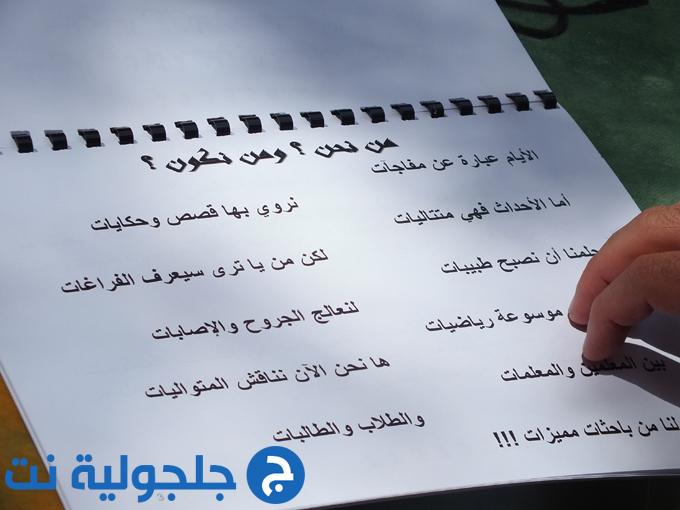 من نحن ؟ ومن نكون ؟
الأيام عبارة عن مفاجآت
نروي بها قصص وحكايات
أما الأحداث فهي متتاليات
لكن من يا ترى سيعرف الفراغات
حلمنا أن نصبح طبيبات
لنعالج الجروح والإصابات
موسوعة رياضيات
ها نحن الآن نناقش المتواليات
بين المعلمين والمعلمات
والطلاب والطالبات
لنا من باحثات مميزات !!!
جلجولية نت